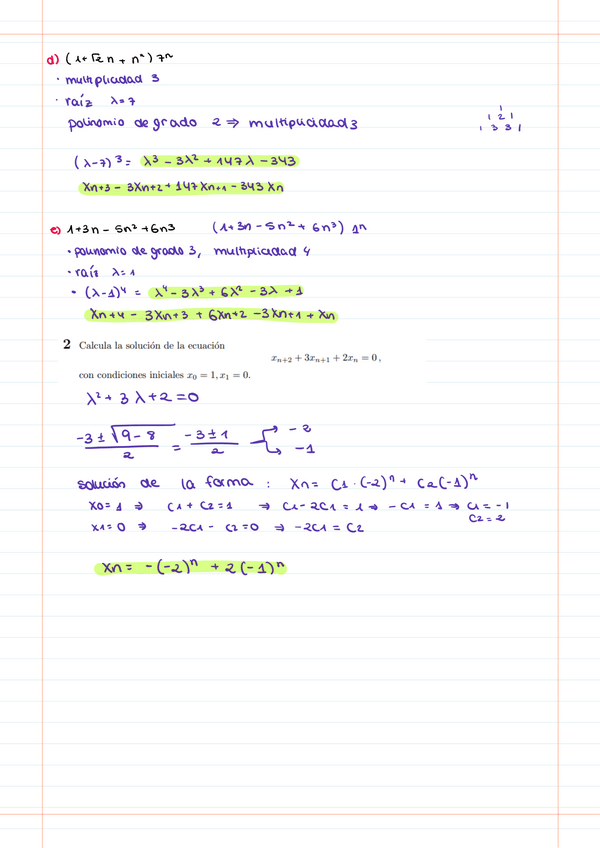 d) (1+√2 n + n²) 7ⁿ
· multiplicidad 3
· raíz λ=7
polinomio de grado 2 ⇒ multiplicidad 3
1
1 2 1
1 3 3 1
(λ-7)³ = λ³ - 3λ² + 147λ - 343
Xn+3 - 3Xn+2 + 147Xn+1 - 343Xn
e) 1+3n - 5n² + 6n3 (1+3n - 5n² + 6n³) 1ⁿ
· polinomio de grado 3, multiplicidad 4
· raíz λ=1
· (λ-1)⁴ = λ⁴ - 3λ³ + 6λ² - 3λ + 1
Xn+4 - 3Xn+3 + 6Xn+2 - 3Xn+1 + Xn
2 Calcula la solución de la ecuación
xₙ₊₂ + 3xₙ₊₁ + 2xₙ = 0 ,
con condiciones iniciales x₀ = 1, x₁ = 0.
λ² + 3λ + 2 = 0
-3 ± √9-8 / 2 = -3 ± 1 / 2 → -2 → -1
solución de la forma : Xn = C1 · (-2)ⁿ + C2(-1)ⁿ
X0 = 1 ⇒ C1 + C2 = 1 ⇒ C1 - 2C1 = 1 ⇒ - C1 = 1 ⇒ C1 = -1
C2 = 2
X1 = 0 ⇒ -2C1 - C2 = 0 ⇒ -2C1 = C2
Xn = -(-2)ⁿ + 2(-1)ⁿ